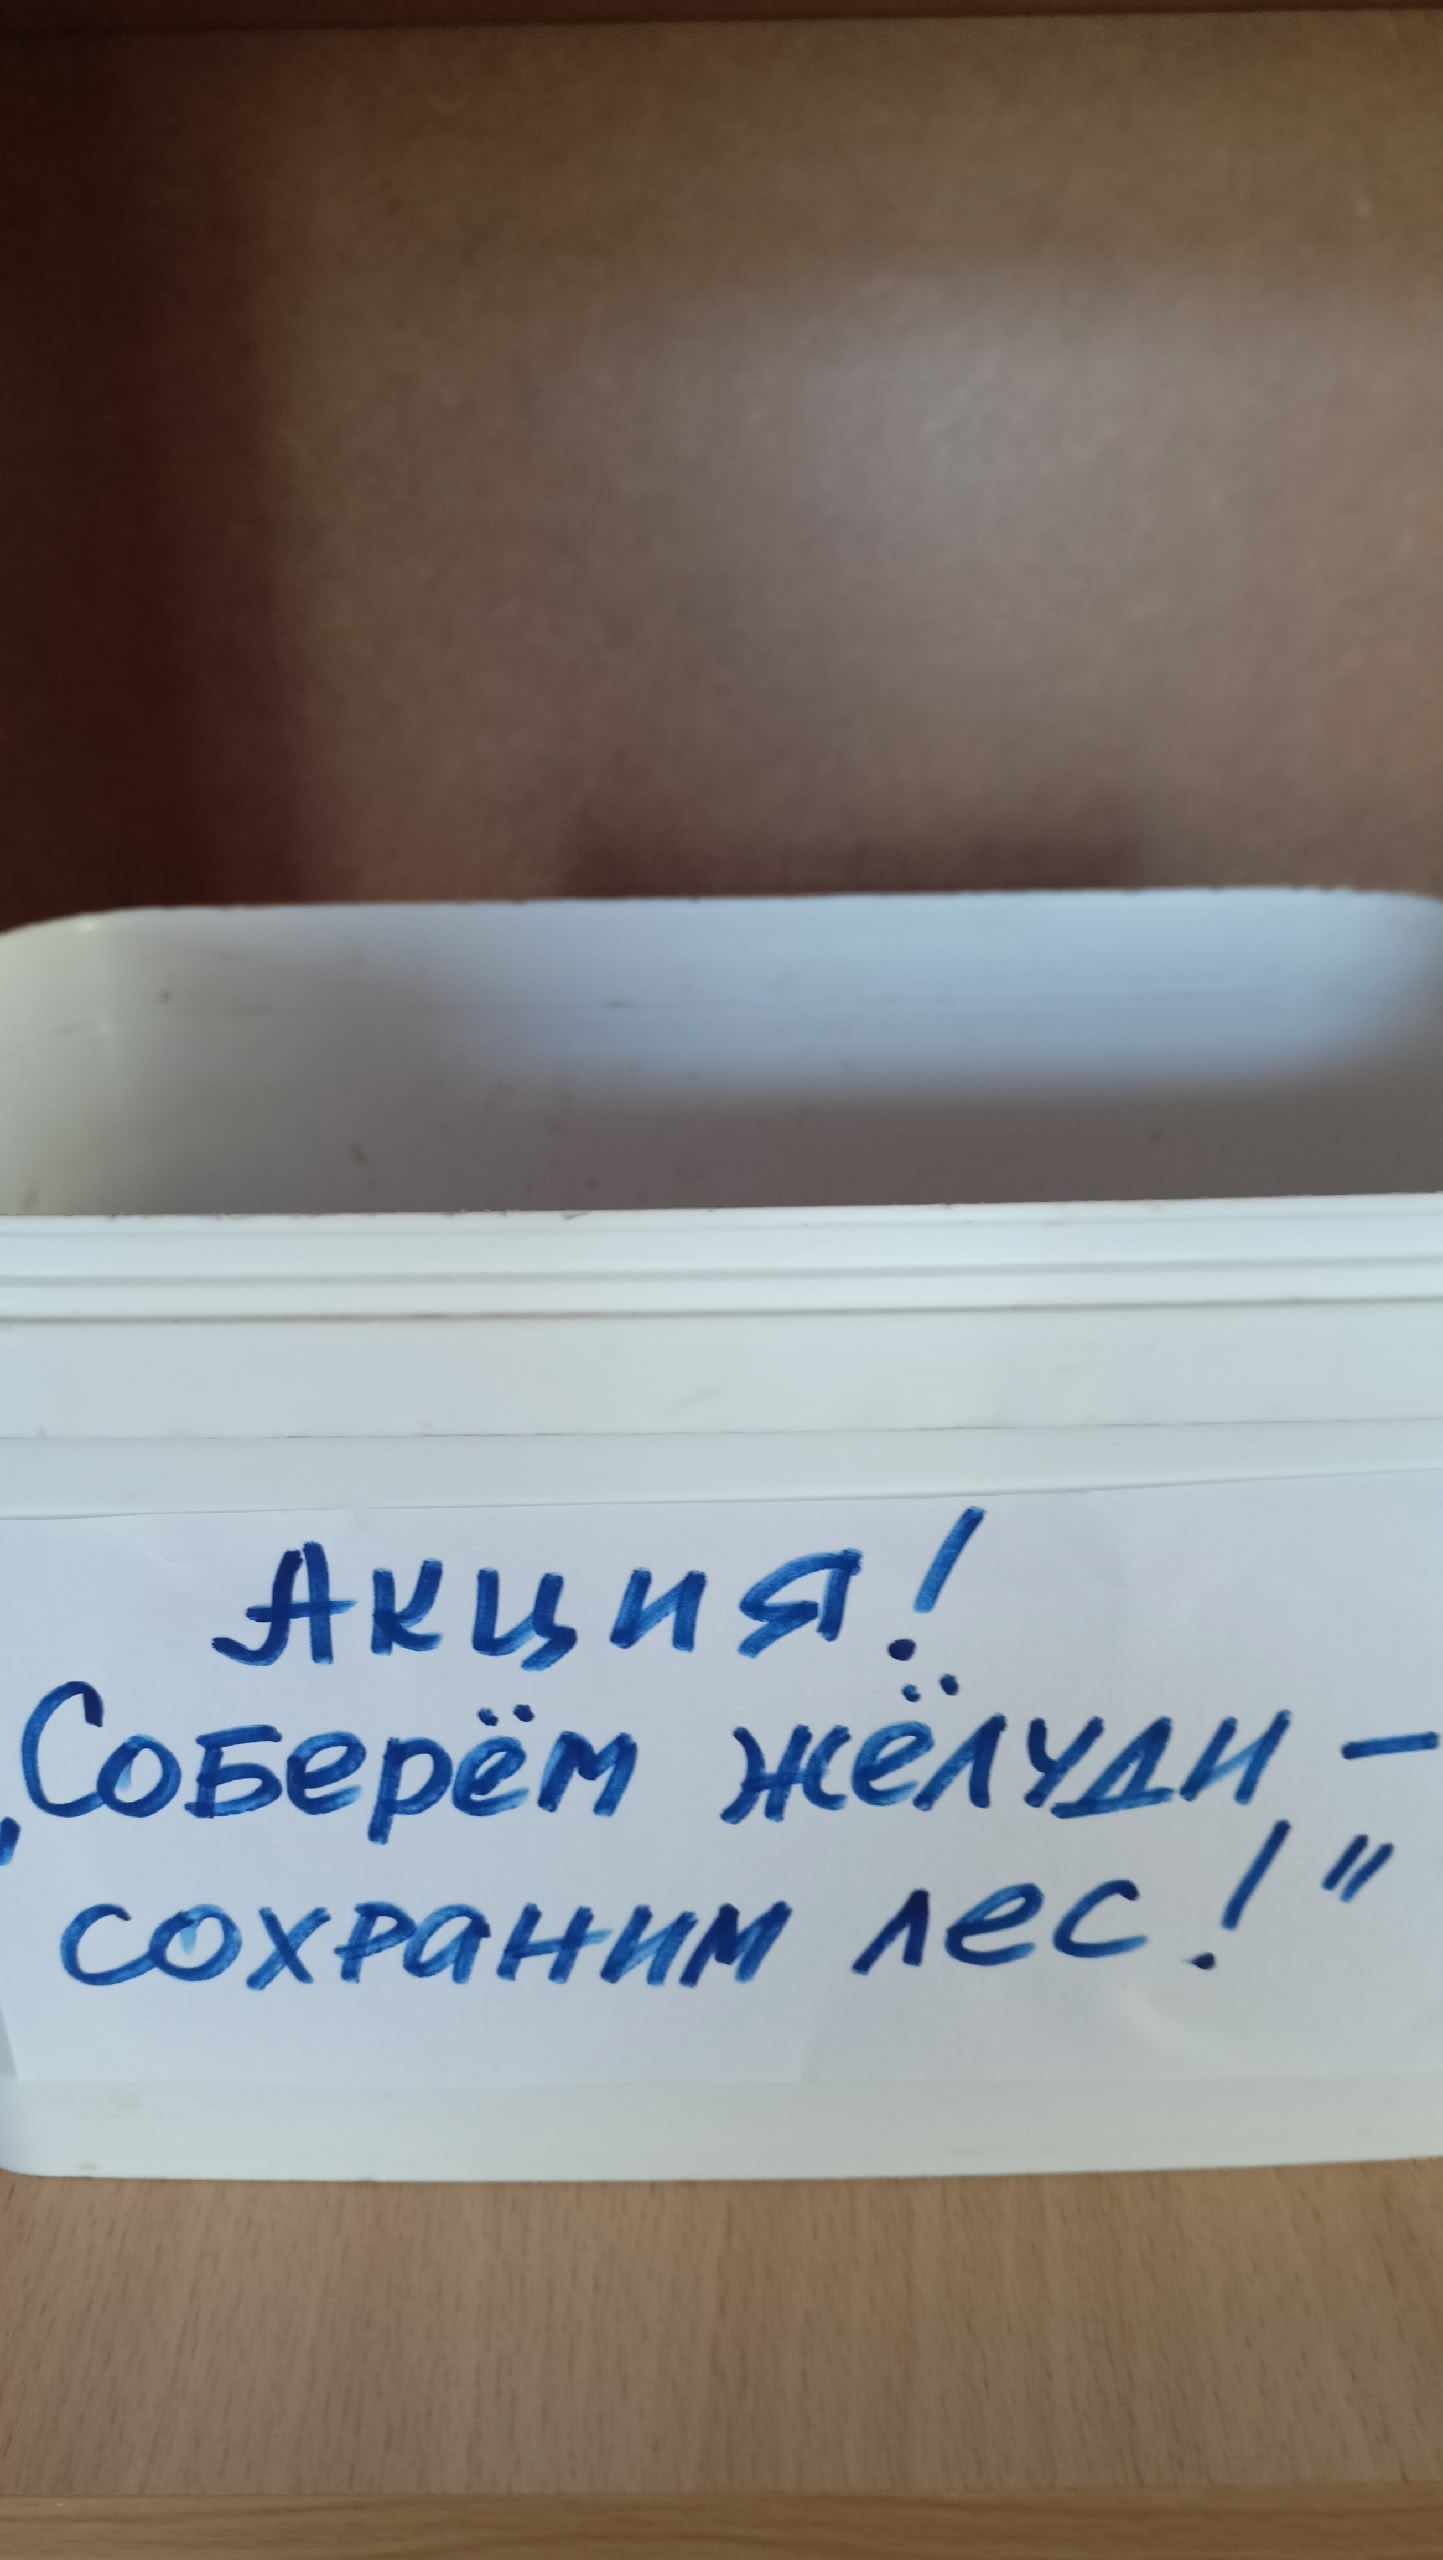 Акция!
„Соберём жёлуди –
сохраним лес!"